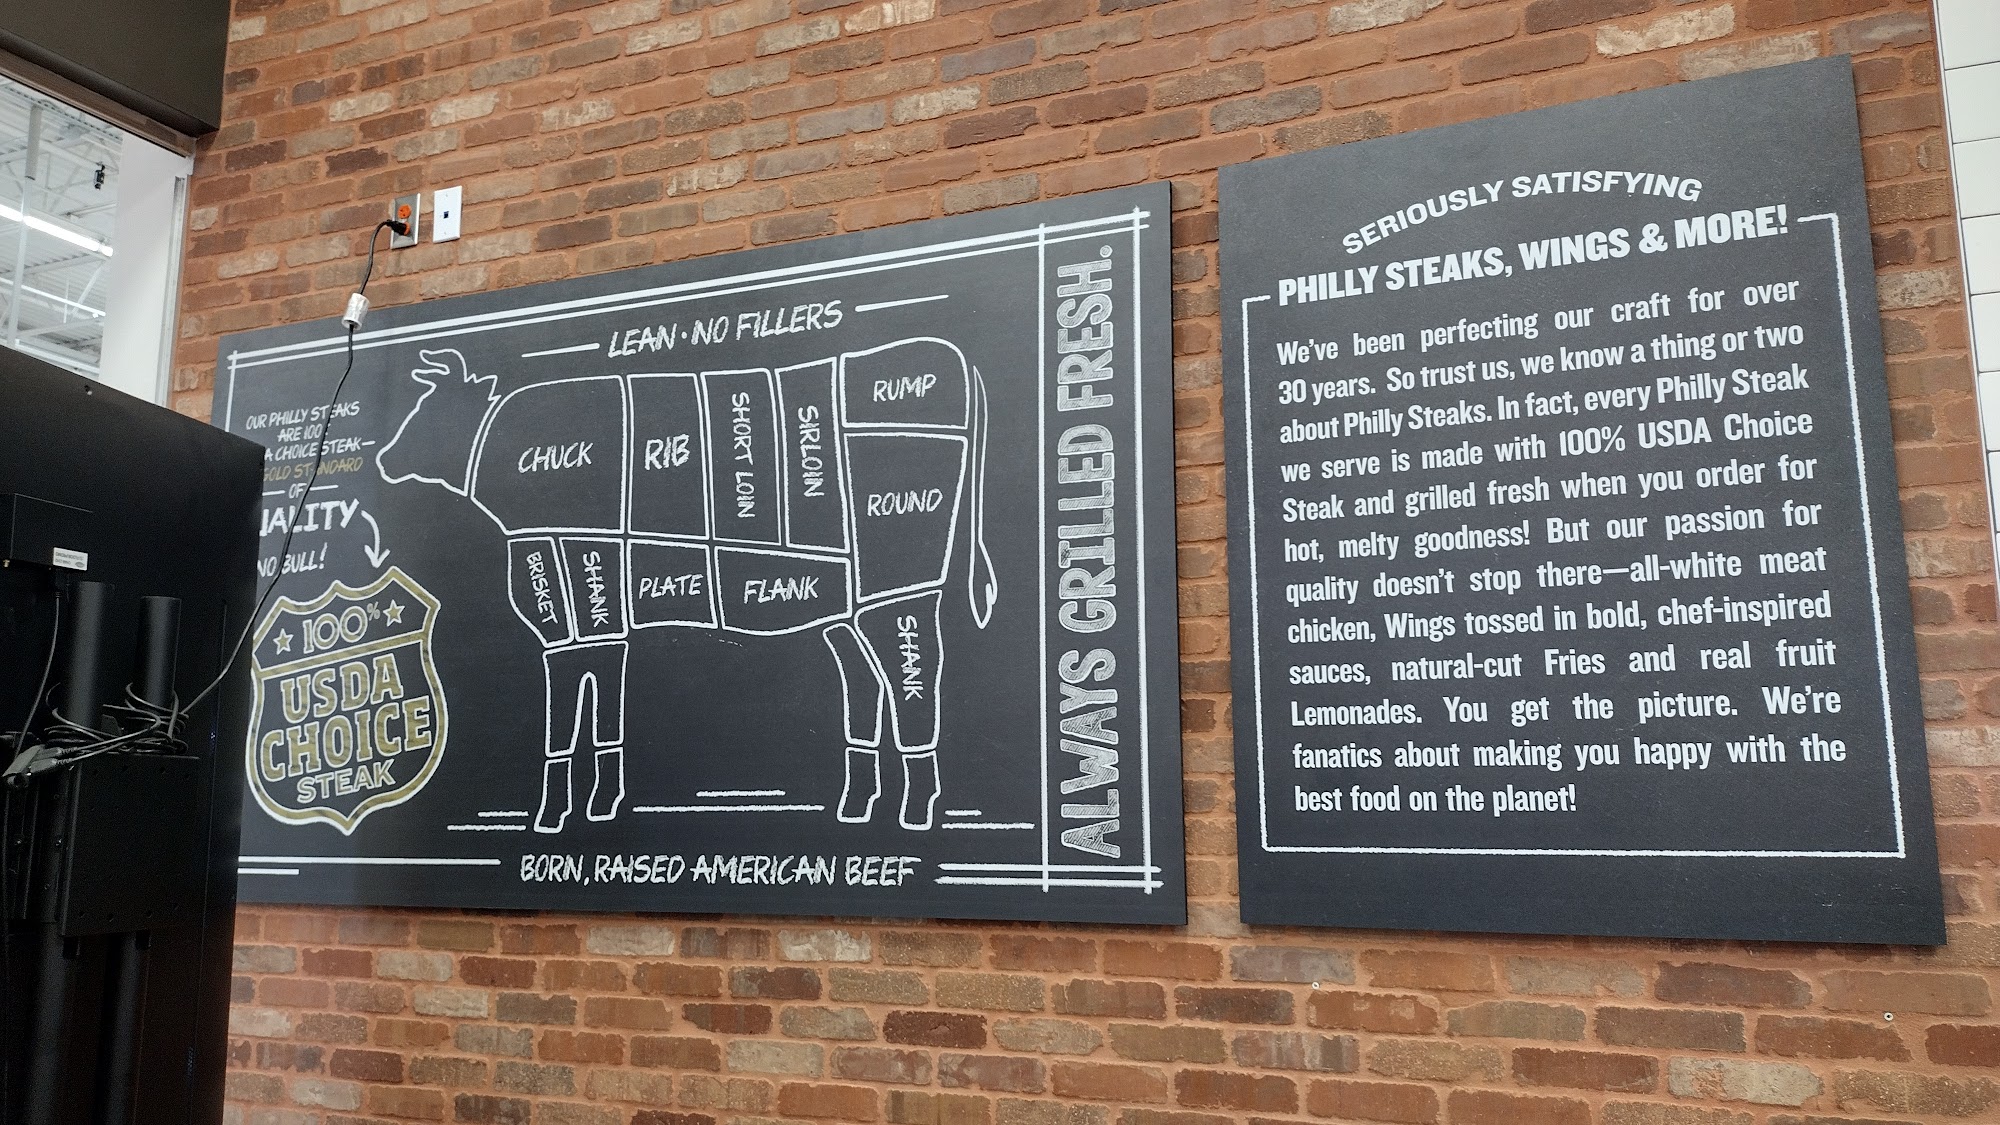 LEAN · NO FILLERS
OUR PHILLY STEAKS
ARE 100
A CHOICE STEAK—
GOLD STANDARD
— OF —
UALITY
NO BULL!
100%
USDA
CHOICE
STEAK
CHUCK
RIB
SHORT LOIN
SIRLOIN
RUMP
ROUND
BRISKET
SHANK
PLATE
FLANK
SHANK
BORN, RAISED AMERICAN BEEF
ALWAYS GRILLED FRESH.®
SERIOUSLY SATISFYING
PHILLY STEAKS, WINGS & MORE!
We've been perfecting our craft for over
30 years. So trust us, we know a thing or two
about Philly Steaks. In fact, every Philly Steak
we serve is made with 100% USDA Choice
Steak and grilled fresh when you order for
hot, melty goodness! But our passion for
quality doesn't stop there—all-white meat
chicken, Wings tossed in bold, chef-inspired
sauces, natural-cut Fries and real fruit
Lemonades. You get the picture. We're
fanatics about making you happy with the
best food on the planet!